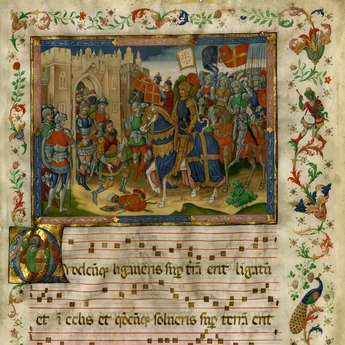 Quodcūqꝫ ligaueris sup̄ trā erit ligatū
et ī celis et qd̄cūqꝫ solueris sup̄ terrā erit